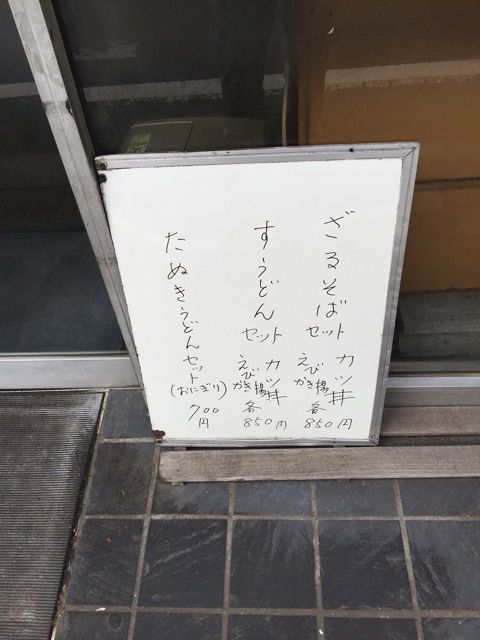 ざるそばセット
カツ丼
えびかき揚
各850円
すうどんセット
カツ丼
えびかき揚
各850円
たぬきうどんセット
(おにぎり)
700円